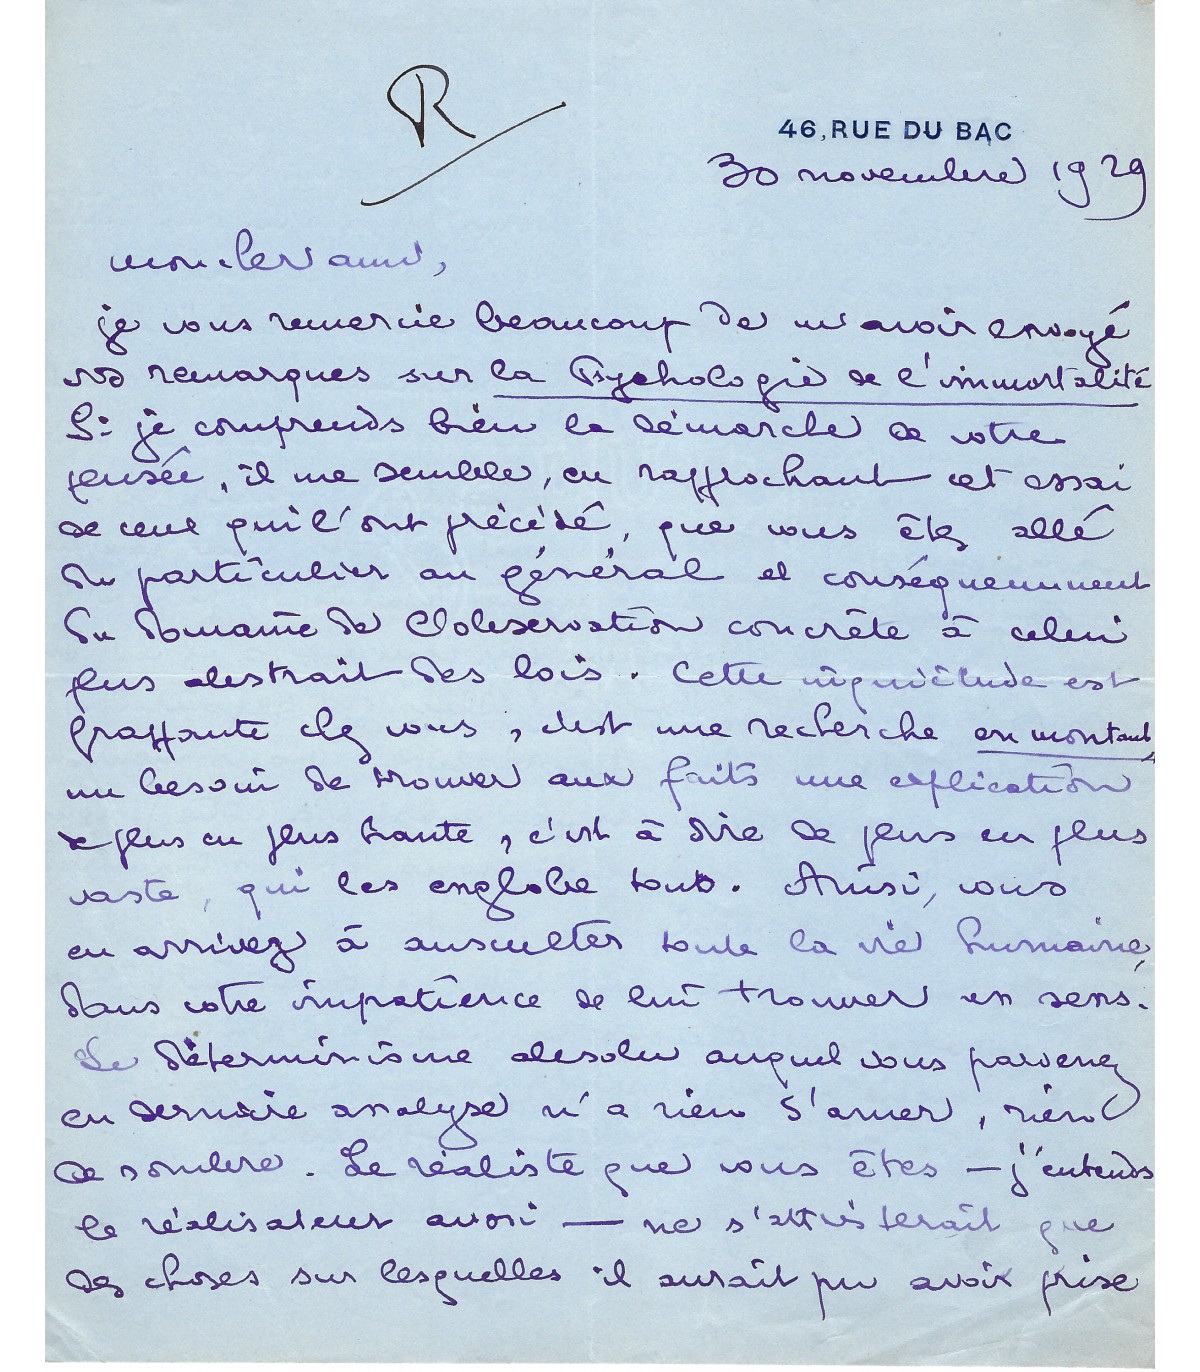 R
46, RUE DU BAC
30 novembre 1929
mon cher ami,
je vous remercie beaucoup de m'avoir envoyé
vos remarques sur la Psychologie de l'immortalité
Si je comprends bien la démarche de votre
pensée, il me semble, en rapprochant cet essai
de ceux qui l'ont précédé, que vous êtes allé
du particulier au général et conséquemment
du domaine de l'observation concrète à celui
plus abstrait des lois. Cette inquiétude est
frappante chez vous, c'est une recherche en montant,
un besoin de trouver aux faits une explication
de plus en plus haute, c'est à dire de plus en plus
vaste, qui les englobe tous. Ainsi, vous
en arrivez à ausculter toute la vie humaine,
dans votre impatience de lui trouver un sens.
Le déterminisme absolu auquel vous parvenez
en dernière analyse n'a rien d'amer, rien
de sombre. Le réaliste que vous êtes — j'entends
le réalisateur aussi — ne s'attristerait que
des choses sur lesquelles il aurait pu avoir prise